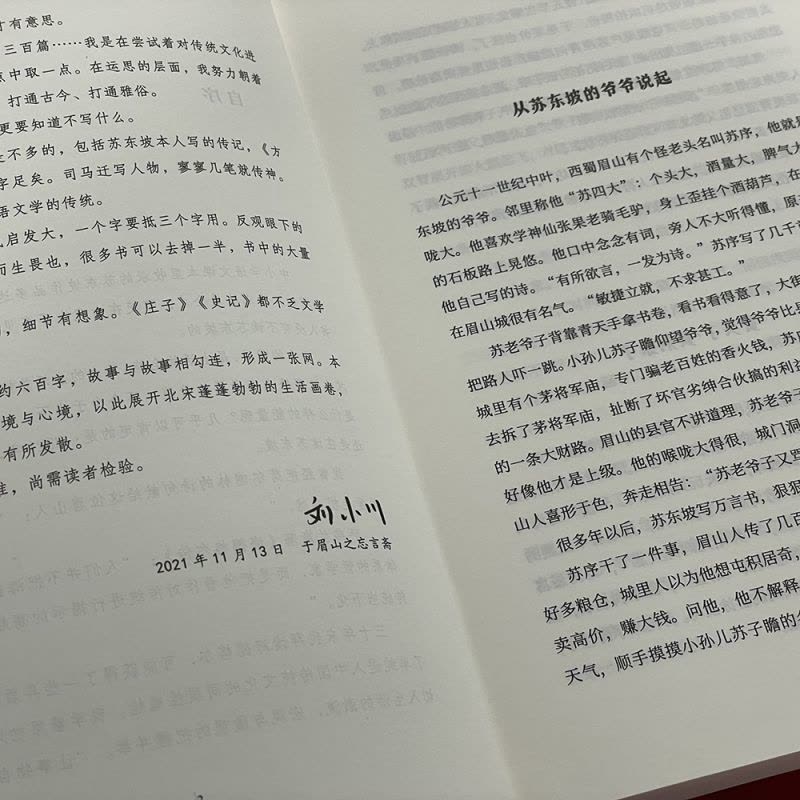 才有意思。
三百篇……我是在尝试着对传统文化进
点中取一点。在运思的层面，我努力朝着
打通古今、打通雅俗。
更要知道不写什么。
是不多的，包括苏东坡本人写的传记，《方
字足矣。司马迁写人物，寥寥几笔就传神。
语文学的传统。
启发大，一个字要抵三个字用。反观眼下的
而生畏也，很多书可以去掉一半，书中的大量
，细节有想象。《庄子》《史记》都不乏文学
约六百字，故事与故事相勾连，形成一张网。本
境与心境，以此展开北宋蓬蓬勃勃的生活画卷，
有所发散。
，尚需读者检验。
刘小川
2021年11月13日 于眉山之忘言斋
从苏东坡的爷爷说起
公元十一世纪中叶，西蜀眉山有个怪老头名叫苏序，他就是
东坡的爷爷。邻里称他“苏四大”：个头大，酒量大，脾气大
咙大。他喜欢学神仙张果老骑毛驴，身上歪挂个酒葫芦，在
的石板路上晃悠。他口中念念有词，旁人不大听得懂，原
他自己写的诗。“有所欲言，一发为诗。”苏序写了几千
在眉山城很有名气。“敏捷立就，不求甚工。”
苏老爷子背靠青天手拿书卷，看书看得意了，大街
把路人吓一跳。小孙儿苏子瞻仰望爷爷，觉得爷爷比
城里有个茅将军庙，专门骗老百姓的香火钱，苏
去拆了茅将军庙，扯断了坏官劣绅合伙搞的利益
的一条大财路。眉山的县官不讲道理，苏老爷子
好像他才是上级。他的喉咙大得很，城门洞
山人喜形于色，奔走相告：“苏老爷子又骂
很多年以后，苏东坡写万言书，狠狠
苏序干了一件事，眉山人传了几百
好多粮仓，城里人以为他想屯积居奇，
卖高价，赚大钱。问他，他不解释
天气，顺手摸摸小孙儿苏子瞻的